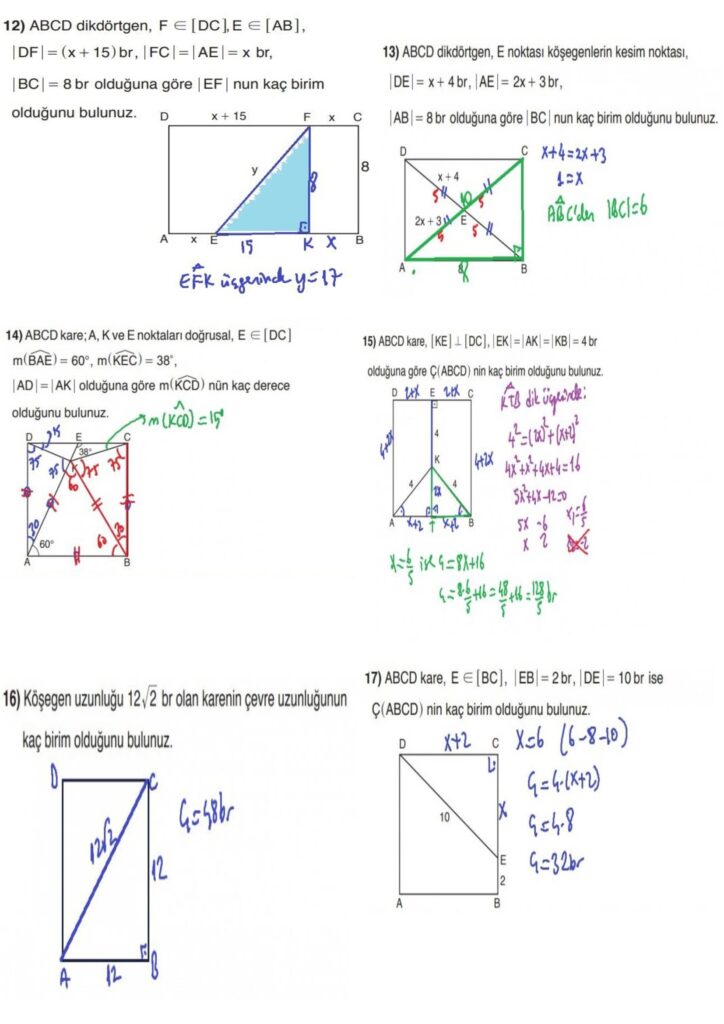 12) ABCD dikdörtgen, F ∈ [DC], E ∈ [AB],
|DF| = (x + 15) br, |FC| = |AE| = x br,
|BC| = 8 br olduğuna göre |EF| nun kaç birim
olduğunu bulunuz.
D x + 15 F x C
y 8 8
A x E 15 K x B
EFK üçgeninde y=17
13) ABCD dikdörtgen, E noktası köşegenlerin kesim noktası,
|DE| = x + 4 br, |AE| = 2x + 3 br,
|AB| = 8 br olduğuna göre |BC| nun kaç birim olduğunu bulunuz.
D C
x + 4
5 10 5
2x + 3 E
5 5
A 8 B
x+4=2x+3
1=x
ABC'den |BC|=6
14) ABCD kare; A, K ve E noktaları doğrusal, E ∈ [DC]
m(BAE) = 60°, m(KEC) = 38°,
|AD| = |AK| olduğuna göre m(KCD) nün kaç derece
olduğunu bulunuz.
m(KCD)=15°
D 15 E C
38°
75 75 K 75 75
60
30 60° 60 30
A B
15) ABCD kare, [KE] ⊥ [DC], |EK| = |AK| = |KB| = 4 br
olduğuna göre Ç(ABCD) nin kaç birim olduğunu bulunuz.
D 2+x E 2+x C
4+2x 4 4+2x
K
4 2x 4
A x+2 T x+2 B
KTB dik üçgeninde:
4²=(2x)²+(x+2)²
4x²+x²+4x+4=16
5x²+4x-12=0
5x -6 x₁=6/5
x 2
x=6/5 ise Ç=8x+16
Ç=8·6/5+16=48/5+16=128/5 br
16) Köşegen uzunluğu 12√2 br olan karenin çevre uzunluğunun
kaç birim olduğunu bulunuz.
D C
12√2 12
A 12 B
Ç=48br
17) ABCD kare, E ∈ [BC], |EB| = 2 br, |DE| = 10 br ise
Ç(ABCD) nin kaç birim olduğunu bulunuz.
D x+2 C
10 x
E
2
A B
x=6 (6-8-10)
Ç=4·(x+2)
Ç=4·8
Ç=32br